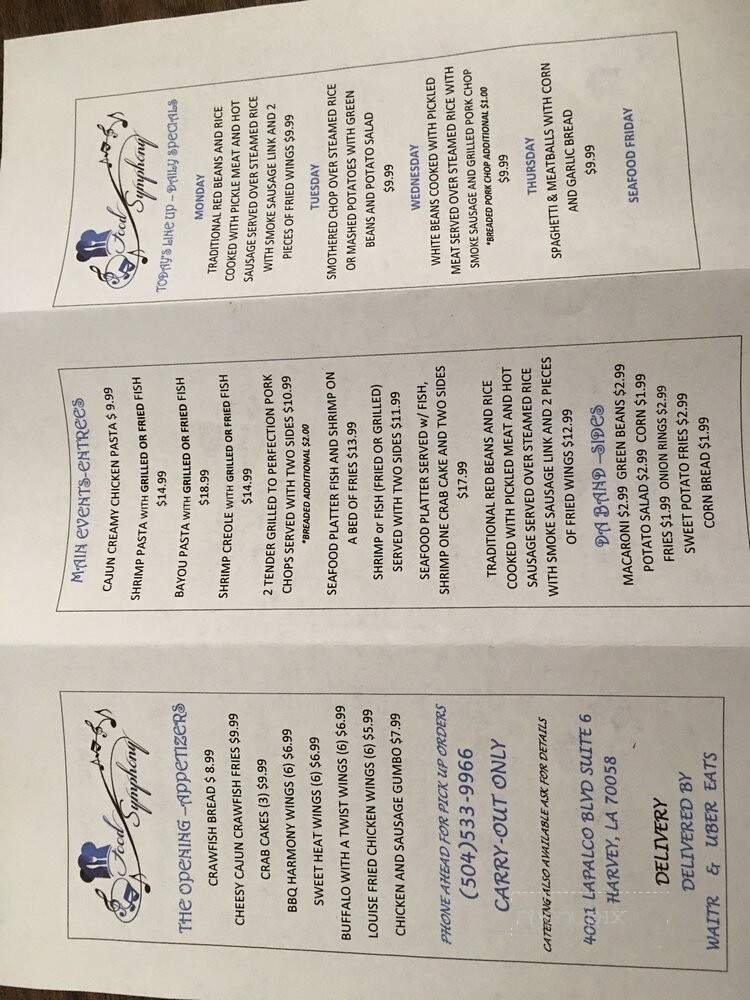 Food
Symphony
THE OPENING –APPETIZERS
CRAWFISH BREAD $ 8.99
CHEESY CAJUN CRAWFISH FRIES $9.99
CRAB CAKES (3) $9.99
BBQ HARMONY WINGS (6) $6.99
SWEET HEAT WINGS (6) $6.99
BUFFALO WITH A TWIST WINGS (6) $6.99
LOUISE FRIED CHICKEN WINGS (6) $5.99
CHICKEN AND SAUSAGE GUMBO $7.99
PHONE AHEAD FOR PICK UP ORDERS
(504)533-9966
CARRY-OUT ONLY
CATERING ALSO AVAILABLE ASK FOR DETAILS
4001 LAPALCO BLVD SUITE 6
HARVEY, LA 70058
DELIVERY
DELIVERED BY
WAITR & UBER EATS
MAIN EVENTS-ENTREES
CAJUN CREAMY CHICKEN PASTA $ 9.99
SHRIMP PASTA WITH GRILLED OR FRIED FISH
$14.99
BAYOU PASTA WITH GRILLED OR FRIED FISH
$18.99
SHRIMP CREOLE WITH GRILLED OR FRIED FISH
$14.99
2 TENDER GRILLED TO PERFECTION PORK
CHOPS SERVED WITH TWO SIDES $10.99
*BREADED ADDITIONAL $2.00
SEAFOOD PLATTER FISH AND SHRIMP ON
A BED OF FRIES $13.99
SHRIMP or FISH (FRIED OR GRILLED)
SERVED WITH TWO SIDES $11.99
SEAFOOD PLATTER SERVED w/ FISH,
SHRIMP ONE CRAB CAKE AND TWO SIDES
$17.99
TRADITIONAL RED BEANS AND RICE
COOKED WITH PICKLED MEAT AND HOT
SAUSAGE SERVED OVER STEAMED RICE
WITH SMOKE SAUSAGE LINK AND 2 PIECES
OF FRIED WINGS $12.99
DA BAND –SIDES
MACARONI $2.99 GREEN BEANS $2.99
POTATO SALAD $2.99 CORN $1.99
FRIES $1.99 ONION RINGS $2.99
SWEET POTATO FRIES $2.99
CORN BREAD $1.99
Food
Symphony
TODAY'S LINE UP – DAILY SPECIALS
MONDAY
TRADITIONAL RED BEANS AND RICE
COOKED WITH PICKLE MEAT AND HOT
SAUSAGE SERVED OVER STEAMED RICE
WITH SMOKE SAUSAGE LINK AND 2
PIECES OF FRIED WINGS $9.99
TUESDAY
SMOTHERED CHOP OVER STEAMED RICE
OR MASHED POTATOES WITH GREEN
BEANS AND POTATO SALAD
$9.99
WEDNESDAY
WHITE BEANS COOKED WITH PICKLED
MEAT SERVED OVER STEAMED RICE WITH
SMOKE SAUSAGE AND GRILLED PORK CHOP
*BREADED PORK CHOP ADDITIONAL $1.00
$9.99
THURSDAY
SPAGHETTI & MEATBALLS WITH CORN
AND GARLIC BREAD
$9.99
SEAFOOD FRIDAY